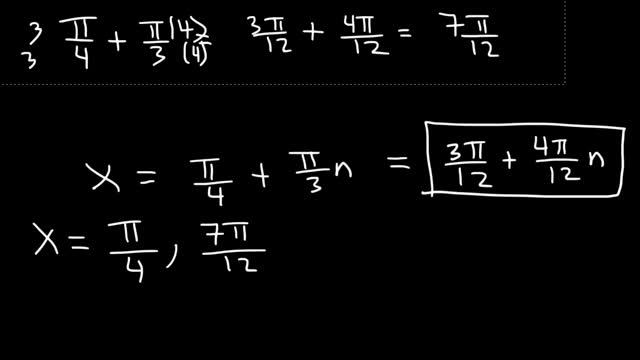 3/3 π/4 + π/3 (4)/(4) 3π/12 + 4π/12 = 7π/12
x = π/4 + π/3 n = 3π/12 + 4π/12 n
x = π/4, 7π/12